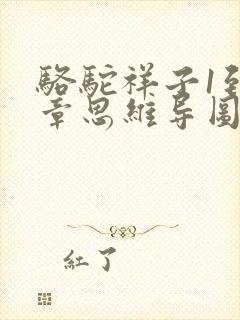 駱駝祥子1至
章思維导圖
紅了